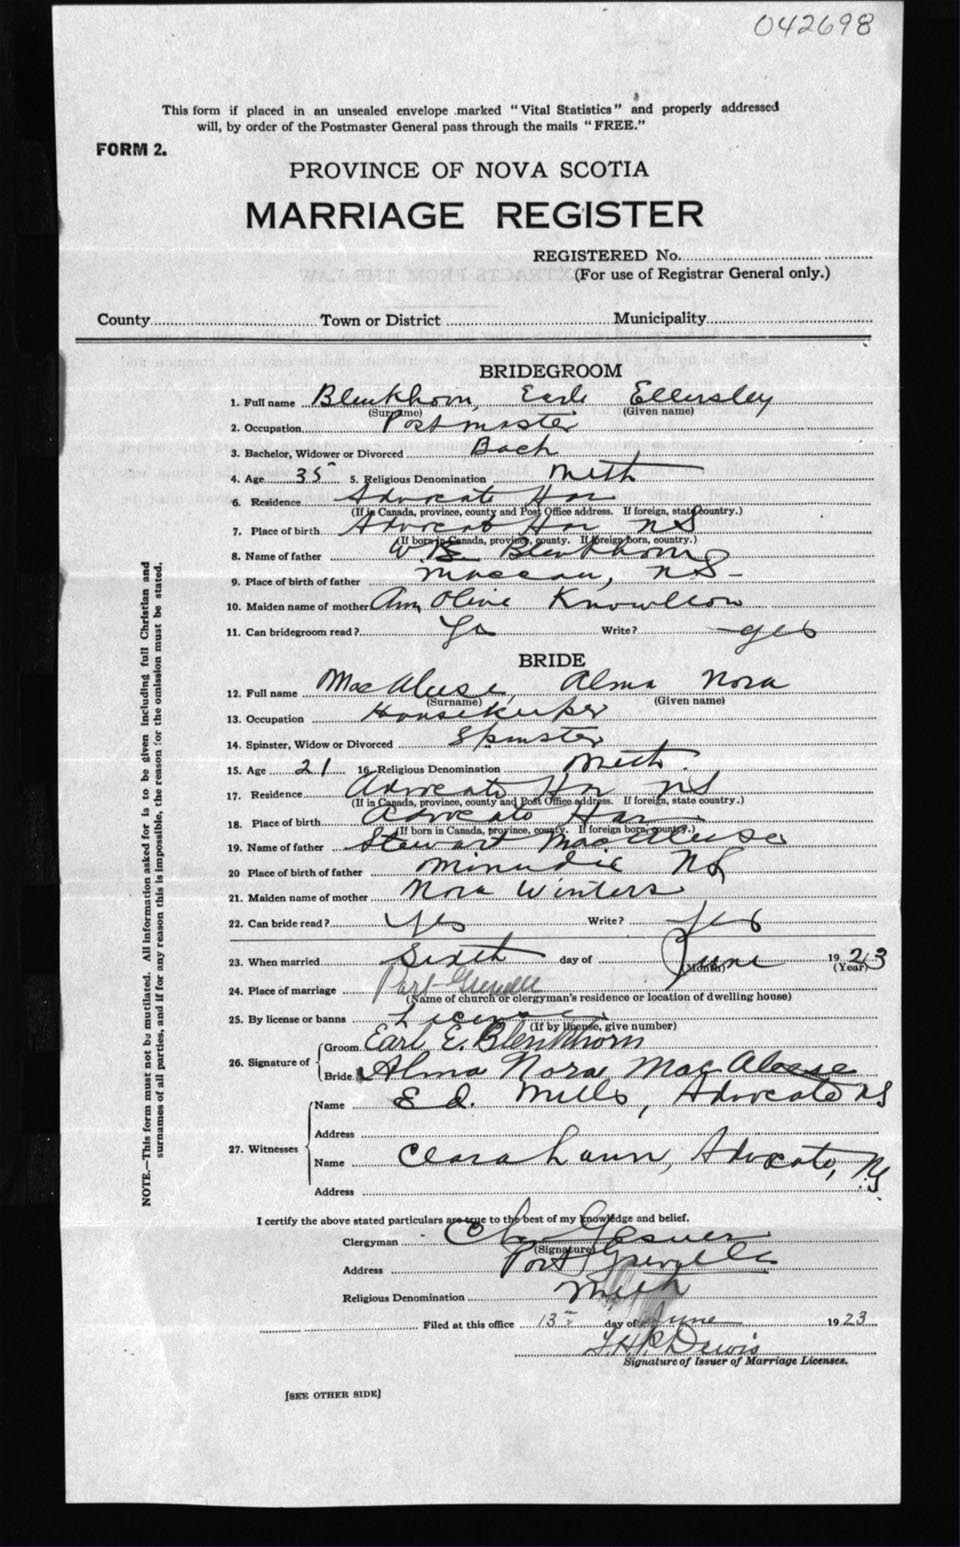 042698
This form if placed in an unsealed envelope marked "Vital Statistics" and properly addressed
will, by order of the Postmaster General pass through the mails "FREE."
FORM 2.
PROVINCE OF NOVA SCOTIA
MARRIAGE REGISTER
REGISTERED No.
(For use of Registrar General only.)
County Town or District Municipality
BRIDEGROOM
1. Full name Blenkhorn, Earle Ellersley
(Surname) (Given name)
2. Occupation Postmaster
3. Bachelor, Widower or Divorced Bach
4. Age 35 5. Religious Denomination Meth
6. Residence Advocate Har
(If in Canada, province, county and Post Office address. If foreign, state country.)
7. Place of birth Advocate Har NS
(If born in Canada, province, county. If foreign born, country.)
8. Name of father Blenkhorn
9. Place of birth of father Maccan, NS
10. Maiden name of mother Ann Olive Knowlton
11. Can bridegroom read? Yes Write? yes
BRIDE
12. Full name MacAleese, Alma Nora
(Surname) (Given name)
13. Occupation Housekeeper
14. Spinster, Widow or Divorced Spinster
15. Age 21 16. Religious Denomination Meth
17. Residence Advocate Har NS
(If in Canada, province, county and Post Office address. If foreign, state country.)
18. Place of birth Advocate Har
(If born in Canada, province, county. If foreign born, country.)
19. Name of father Stewart MacAleese
20 Place of birth of father Minudie NS
21. Maiden name of mother Nora Winters
22. Can bride read? Yes Write? Yes
23. When married Sixth day of June 1923
(Month) (Year)
24. Place of marriage Port Greville
(Name of church or clergyman's residence or location of dwelling house)
25. By license or banns License
(If by license, give number)
26. Signature of Groom Earl E. Blenkhorn
Bride Alma Nora MacAleese
27. Witnesses Name Ed. Mills, Advocate NS
Address
Name Clara Lunn, Advocate, NS
Address
I certify the above stated particulars are true to the best of my knowledge and belief.
Clergyman Gesner
(Signature)
Address Port Greville
Religious Denomination Meth
Filed at this office 13 day of June 1923
Dewis
Signature of Issuer of Marriage Licenses.
[SEE OTHER SIDE]
NOTE.—This form must not be mutilated. All information asked for is to be given including full Christian and
surnames of all parties, and if for any reason this is impossible, the reason for the omission must be stated.